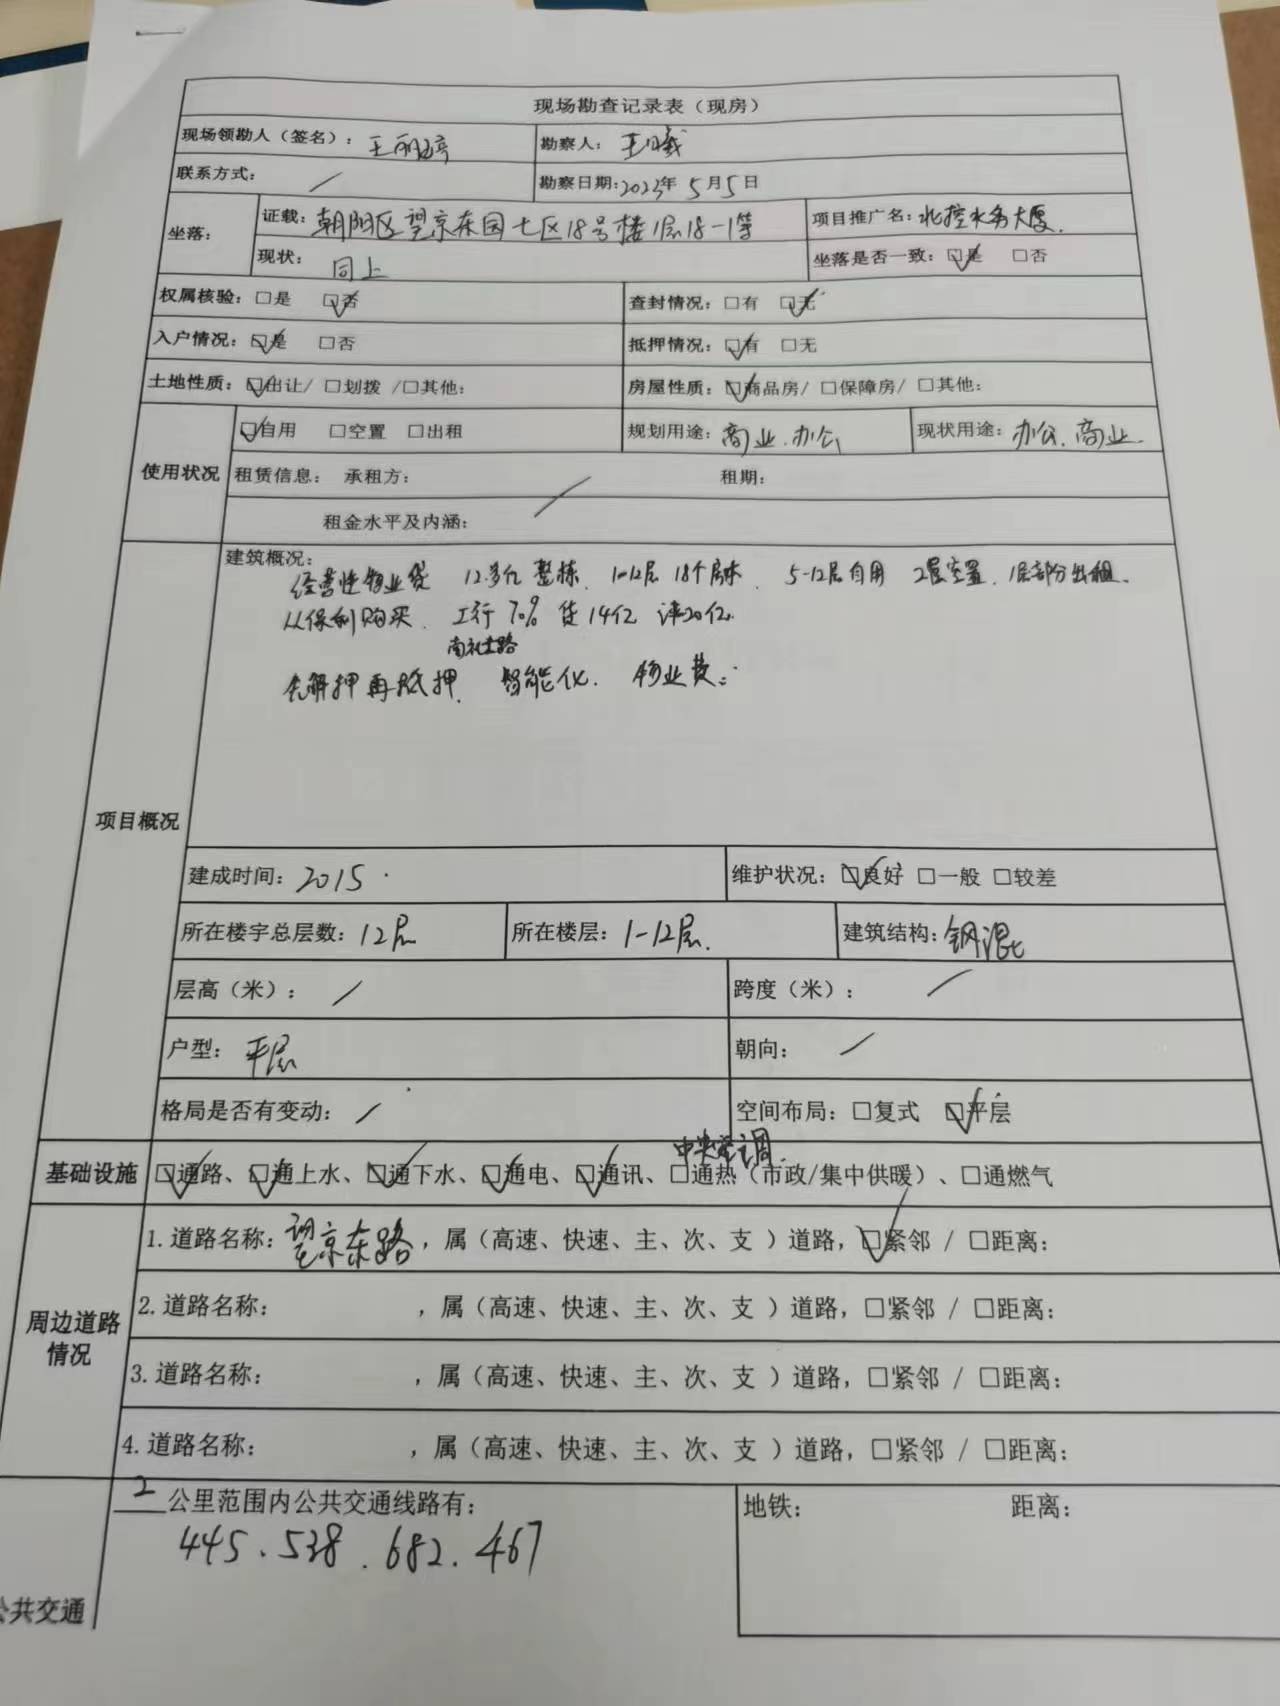 现场勘查记录表（现房）
现场领勘人（签名）： 勘察人：
联系方式： / 勘察日期：2023年5月5日
坐落： 证载：朝阳区望京东园七区18号楼1层18-1等 项目推广名：北控水务大厦.
现状：同上 坐落是否一致：☑是 □否
权属核验：□是 ☑否 查封情况：□有 ☑无
入户情况：☑是 □否 抵押情况：☑有 □无
土地性质：☑出让/ □划拨 /□其他： 房屋性质：☑商品房/ □保障房/ □其他：
使用状况 ☑自用 □空置 □出租 规划用途：商业.办公 现状用途：办公.商业.
租赁信息： 承租方： / 租期：
租金水平及内涵：
项目概况 建筑概况：
经营性物业贷 12.多亿 整栋. 1-12层 18个房本. 5-12层自用 2层空置. 1层部分出租.
从保利购买. 工行 70% 贷14亿 评20亿.
先解押再抵押. 智能化. 物业费：
建成时间：2015. 维护状况：☑良好 □一般 □较差
所在楼宇总层数：12层 所在楼层：1-12层. 建筑结构：钢混
层高（米）： / 跨度（米）： /
户型：平层 朝向： /
格局是否有变动： / 空间布局：□复式 ☑平层
中央空调.
基础设施 ☑通路、☑通上水、☑通下水、☑通电、☑通讯、□通热（市政/集中供暖）、□通燃气
周边道路情况 1.道路名称：望京东路，属（高速、快速、主、次、支 ）道路，☑紧邻 / □距离：
2.道路名称： ，属（高速、快速、主、次、支 ）道路，□紧邻 / □距离：
3.道路名称： ，属（高速、快速、主、次、支 ）道路，□紧邻 / □距离：
4.道路名称： ，属（高速、快速、主、次、支 ）道路，□紧邻 / □距离：
公共交通 2公里范围内公共交通线路有： 地铁： 距离：
445.538.682.467